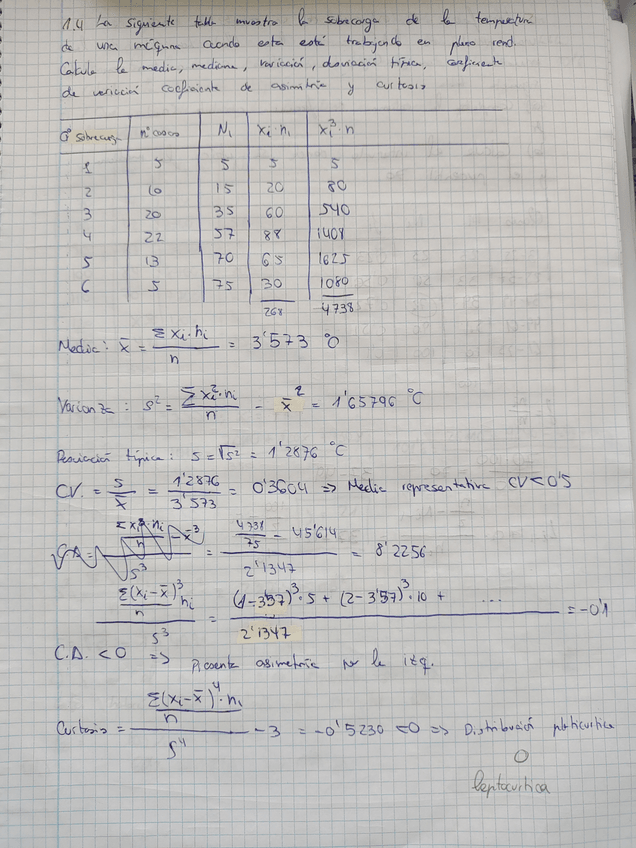 1.4 La siguiente tabla muestra la sobrecarga de la temperatura
de una máquina cuando esta esté trabajando en pleno rend.
Calcula la media, mediana, variación, desviación típica, coeficiente
de variación coeficiente de asimitría y curtosis
Cº sobrecarga nº casos Ni xi·ni xi³·n
1 5 5 5 5
2 10 15 20 80
3 20 35 60 540
4 22 57 88 1408
5 13 70 65 1625
6 5 75 30 1080
268 4738
Media: x̄ = Σxi·ni / n = 3'573 º
Varianza: s² = Σxi²·ni / n - x̄² = 1'65796 ºC
Desviación típica: s = √s² = 1'2876 ºC
CV. = s / x̄ = 1'2876 / 3'573 = 0'3604 => Media representativa CV<0'5
CA = (Σxi³·ni / n - x̄³) / s³ = (4738 / 75 - 45'614) / 2'1347 = 8'2256
(Σ(xi-x̄)³ ni / n) / s³ = ((1-3'57)³·5 + (2-3'57)³·10 + ...) / 2'1347 = -0'1
C.A. < 0 => Presenta asimetría a la izq.
Curtosis = (Σ(xi-x̄)⁴·ni / n) / s⁴ - 3 = -0'5230 <0 => Distribución platicurtica
O
leptocurtica